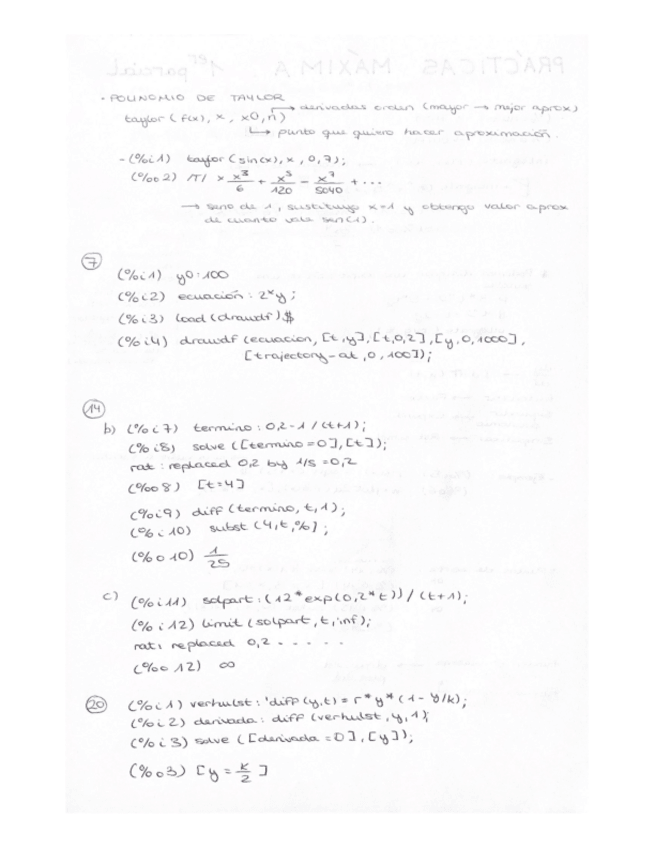 · POLINOMIO DE TAYLOR
→ derivadas orden (mayor → mejor aprox)
taylor (f(x), x, x0, n)
↳ punto que quiero hacer aproximación.
- (%i1) taylor (sin(x), x, 0, 7);
(%o2) /T/ x x³/6 + x⁵/120 - x⁷/5040 + ...
→ seno de 1, sustituyo x=1 y obtengo valor aprox
de cuanto vale sen(1).
7
(%i1) y0:100
(%i2) ecuación: 2*y;
(%i3) load (drawdf)$
(%i4) drawdf (ecuacion, [t,y], [t,0,2], [y,0,1000],
[trajectory-at, 0, 100]);
14
b) (%i7) termino: 0,2-1/(t+1);
(%i8) solve ([termino=0],[t]);
rat: replaced 0,2 by 1/5 = 0,2
(%o8) [t=4]
(%i9) diff (termino, t, 1);
(%i10) subst (4, t, %);
(%o10) 1/25
c) (%i11) solpart: (12*exp(0,2*t))/(t+1);
(%i12) limit (solpart, t, inf);
rat: replaced 0,2 - - - - -
(%o12) ∞
20 (%i1) verhulst: 'diff (y,t) = r*y*(1-y/k);
(%i2) derivada: diff (verhulst, y, 1);
(%i3) solve ([derivada=0], [y]);
(%o3) [y = k/2]